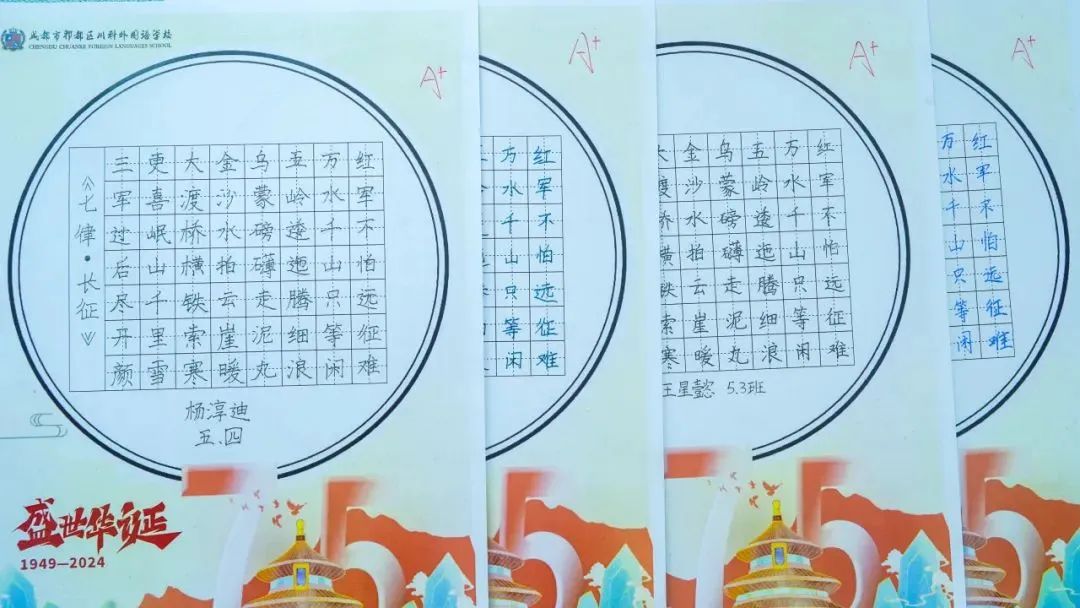 成都市郫都区川科外国语学校
CHENGDU CHUANKE FOREIGN LANGUAGES SCHOOL
A+
《七律·长征》
红军不怕远征难
万水千山只等闲
五岭逶迤腾细浪
乌蒙磅礴走泥丸
金沙水拍云崖暖
大渡桥横铁索寒
更喜岷山千里雪
三军过后尽开颜
杨淳迪
五.四
盛世华诞
1949—2024
75
A+
红军不怕远征难
万水千山只等闲
75
A+
红军不怕远征难
万水千山只等闲
五岭逶迤腾细浪
乌蒙磅礴走泥丸
金沙水拍云崖暖
王星懿 5.3班
75
A+
红军不怕远征难
万水千山只等闲